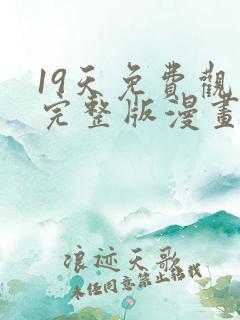 19天免費觀
完整版漫畫
浪迹天歌
未经同意禁止转载